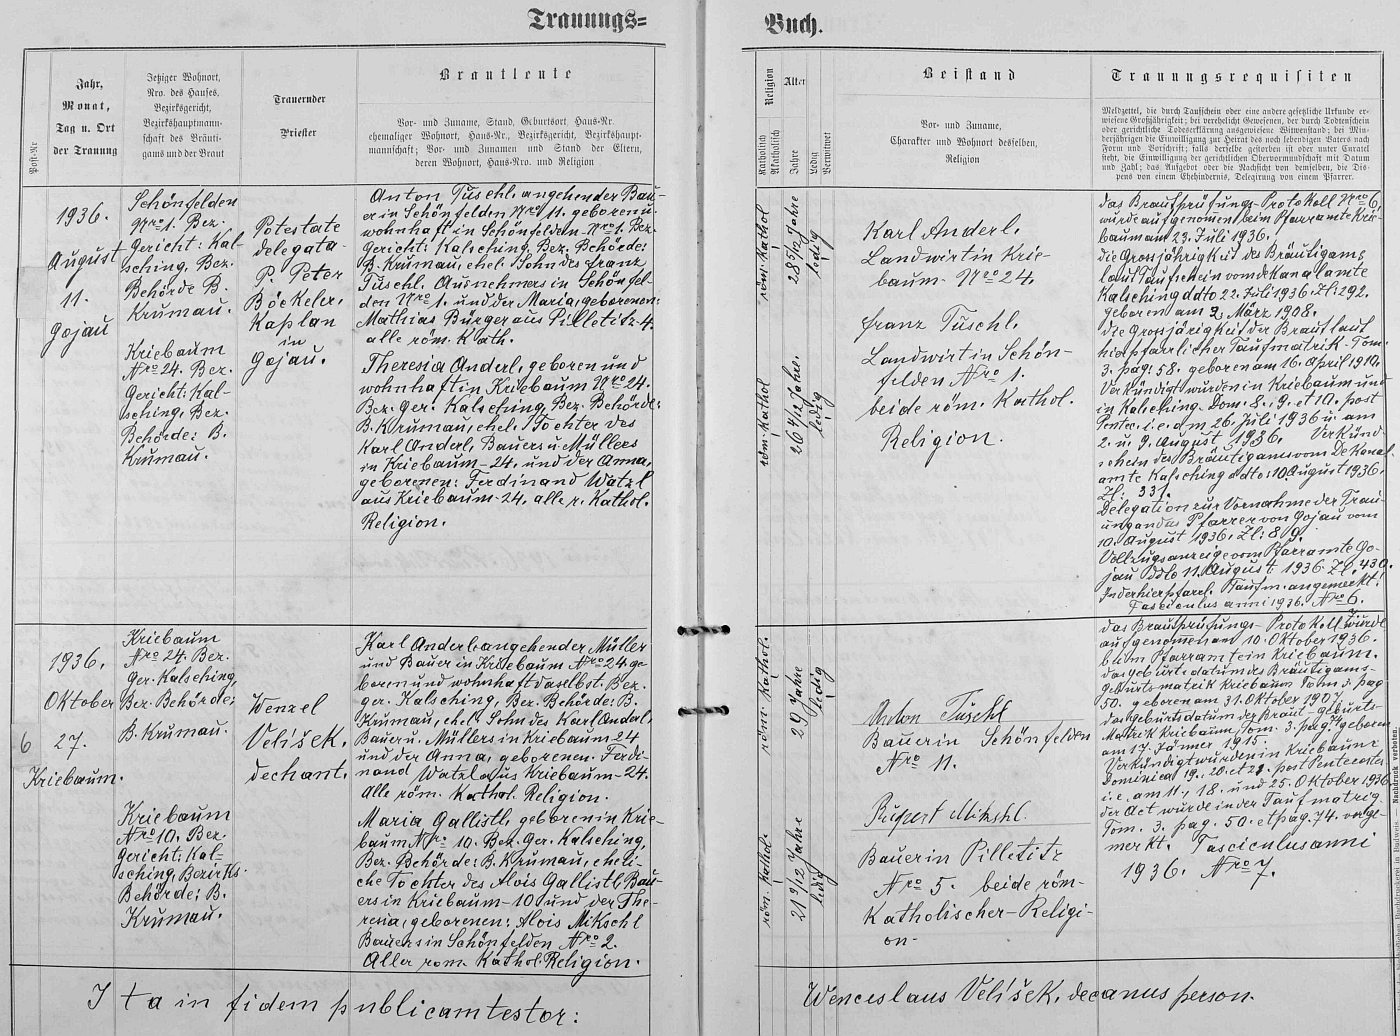 Trauungs=
Buch.
Post-Nr
Jahr,
Monat,
Tag u. Ort
der Trauung
Jetziger Wohnort,
Nro. des Hauses,
Bezirksgericht,
Bezirkshauptmann-
schaft des Bräuti-
gams und der Braut
Trauernder
Priester
Brautleute
Vor- und Zuname, Stand, Geburtsort, Haus-Nr.
ehemaliger Wohnort, Haus-Nr., Bezirksgericht, Bezirkshaupt-
mannschaft; Vor- und Zunamen und Stand der Eltern,
deren Wohnort, Haus-Nro. und Religion
Religion
Katholisch
Akatholisch
Alter
Jahre
Ledig
Verwitwet
Beistand
Vor- und Zuname,
Charakter und Wohnort desselben,
Religion
Trauungsrequisiten
Meldzettel, die durch Taufschein oder eine andere gesetzliche Urkunde er-
wiesene Großjährigkeit; bei verehelicht Gewesenen, der durch Todtenschein
oder gerichtliche Todeserklärung ausgewiesene Witwenstand; bei Min-
derjährigen die Einwilligung zur Heirat des noch lebenden Vaters nach
Form und Vorschrift; falls derselbe gestorben ist oder unter Curatel
steht, die Einwilligung der gerichtlichen Obervormundschaft mit Datum
und Zahl; das Aufgebot oder die Nachsicht von demselben, die Dis-
pens von einem Ehehindernis, Delegirung von einem Pfarrer.
1936.
August
11.
Gojau
Schönfelden
Nro 1. Bez.
Gericht: Kal-
sching, Bez.
Behörde B.
Krumau.
Kriebaum
Nro 24. Bez.
Gericht: Kal-
sching, Bez.
Behörde: B.
Krumau.
Potestate
delegata-
P. Peter
Böckeler,
Kaplan
in
Gojau.
Anton Tuschl, angehender Bau-
er in Schönfelden Nro 11. geboren u.
wohnhaft in Schönfelden Nro 1. Bez.
Gericht: Kalsching, Bez. Behörde:
B. Krumau, ehel. Sohn des Franz
Tuschl, Ausnehmers in Schönfel-
den Nro 1. und der Maria, geborenen:
Mathias Bürger aus Pilletitz-4.
alle röm. Kath.
Theresia Anderl, geboren und
wohnhaft in Kriebaum Nro 24.
Bez. Ger. Kalsching, Bez. Behörde:
B. Krumau, ehel. Tochter des
Karl Anderl, Bauers u. Müllers
in Kriebaum-24. und der Anna,
geborenen: Ferdinand Watzl
aus Kriebaum-24. alle r. Kathol.
Religion.
röm. Kathol
28 5/12 Jahre
ledig
röm. Kathol
26 4/12 Jahre.
ledig
Karl Anderl,
Landwirt in Krie-
baum-Nro 24.
Franz Tuschl.
Landwirt in Schön-
felden Nro 1.
beide röm. Kathol.
Religion.
das Brautprüfungs-Protokoll Nro 6
wurde aufgenomen beim Pfarramte Krie-
baum am 23. Juli 1936.
die Grosjährigkeit des Bräutigams
laut Taufschein vom dekanalamte
Kalsching ddto 22. Juli 1936. Zl: 292.
geboren am 2 März 1908.
die Grosjärigkeit der Braut laut
hierpfarrlicher Taufmatrik-Tom.
3. pag. 58. geboren am 16. April 1910.
Verkündigt wurden in Kriebaum und
in Kalsching-Dom. 8., 9. et 10. post
Pentec. i. e. am 26. Juli 1936 u. am
2. u. 9. August 1936. Verkünd-
schein des Bräutigams vom Dekanal
amte Kalsching ddto: 10. August 1936.
Zl: 331.
Delegation zur Vornahme der Trau-
ung an das Pfarrer von Gojau vom
10. August 1936. Zl: 89.
Vollzugsanzeige vom Pfarramte Go-
jau ddto 11. August 1936 Zl. 430.
In der hierpfarrl. Taufm. angemerkt!
Fasciculus anni 1936. Nro 6.
6
1936.
Oktober
27.
Kriebaum.
Kriebaum
Nro 24. Bez.
Ger. Kalsching,
Bez. Behörde:
B. Krumau.
Kriebaum
Nro 10. Bez.
Gericht: Kal-
sching, Bezirks-
Behörde: B.
Krumau.
Wenzel
Velíšek,
dechant.
Karl Anderl angehender Müller
und Bauer in Kriebaum Nro 24 ge
boren und wohnhaft daselbst. Bez.
ger. Kalsching, Bez. Behörde: B.
Krumau, ehel. Sohn des Karl Anderl,
Bauer u. Müllers in Kriebaum-24
und der Anna, geborenen: Ferdi-
nand Watzl aus Kriebaum-24.
Alle röm. Kathol. Religion.
Maria Gallistl, geboren in Krie-
baum Nro 10. Bez. Ger. Kalsching,
Bez. Behörde: B. Krumau, eheli-
che Tochter des Alois Gallistl Bau-
ers in Kriebaum-10 und der The-
resia, geborenen: Alois Mikschl
Bauers in Schönfelden Nro 2.
Aller röm. Kathol. Religion.
röm. Kathol.
29 Jahre
ledig
röm. Kathol.
21 9/12 Jahre
ledig
Anton Tuschl
Bauer in Schönfelden
Nro 11.
Rupert Mikschl.
Bauer in Pilletitz
Nro 5. beide röm-
Katholischer-Religi-
on-
das Brautprüfungs-Protokoll wurde
aufgenomen am 10. Oktober 1936.
beim Pfarramte in Kriebaum.
das geburtsdatum des Bräutigams-
Geburtsmatrik Kriebaum Tom. 3. pag
50. geboren am 31. Oktober 1907.
das Geburtsdatum der Braut-Geburts-
Matrik Kriebaum, Tom. 3. pag. 74 geboren
am 17. Jänner 1915.
Verkündigt wurden in Kriebaum:
Dominica 19., 20. et 21. post Pentecosten
i. e. am 11., 18. und 25. Oktober 1936
der Act wurde in der Taufmatrig.
Tom. 3. pag. 50. et pag. 74. vorge-
merkt. Fasciculus anni
1936. Nro 7.
Ita in fidem publicam testor:
Wenceslaus Velíšek, decanus person.
Buchdruckerei in Budweis. — Nachdruck verboten.